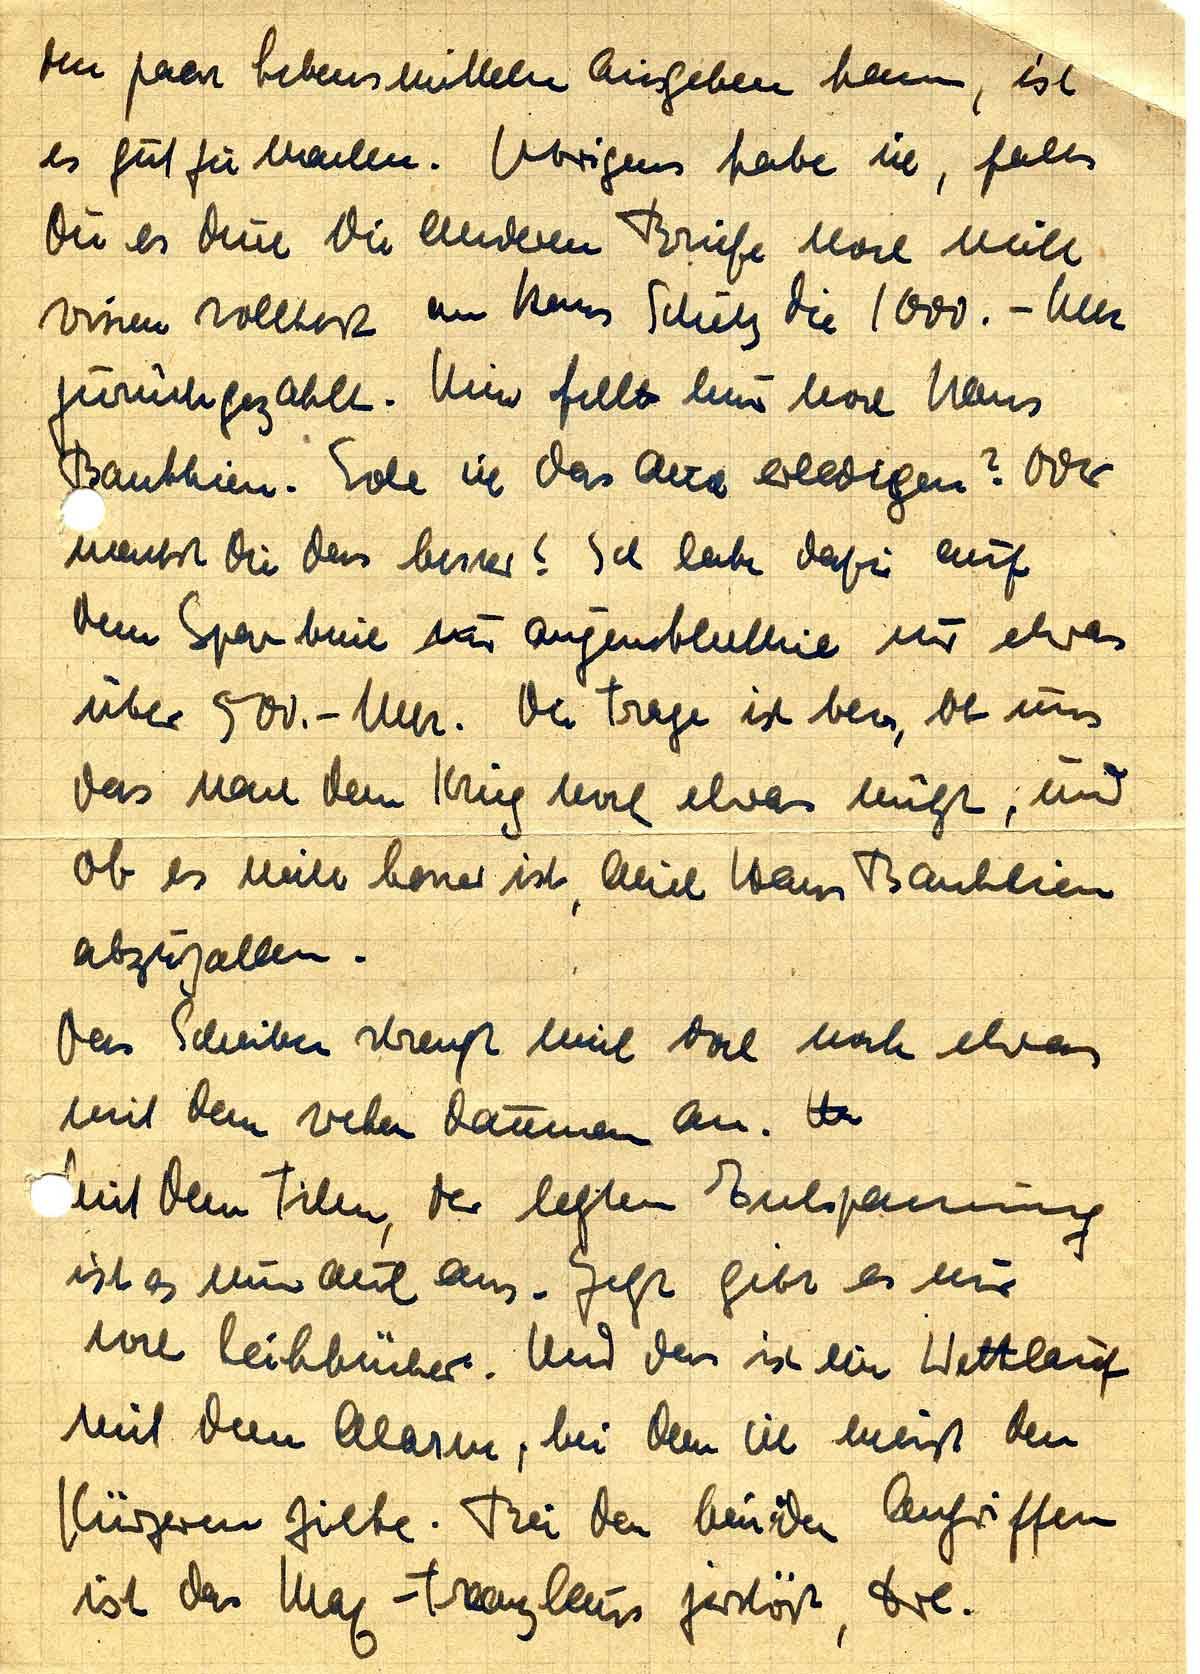 den paar Lebensmitteln ausgeben kann, ist
es gut zu machen. Übrigens habe ich, falls
Du es durch die anderen Briefe noch nicht
wissen solltest an Hans Schütz die 1000.- Mk
zurückgezahlt. Nun fehlt nur noch Hans
Banthien. Soll ich das auch erledigen? Oder
machst Du das besser? Ich habe dafür auf
dem Sparbuch augenblicklich nur etwas
über 500.- Mk. Die Frage ist bloss, ob uns
das nach dem Krieg noch etwas nützt, und
ob es nicht besser ist, auch Hans Banthien
abzuzahlen.
Das Schreiben strengt mich doch noch etwas
mit dem wehen Daumen an.
Mit dem Film, der letzten Entspannung
ist es nun auch aus. Jetzt gibt es nur
noch Leihbücher. Und das ist ein Wettlauf
mit dem Alarm, bei dem ich meist den
Kürzeren ziehe. Bei den beiden Angriffen
ist das Max-Franzhaus zerstört,